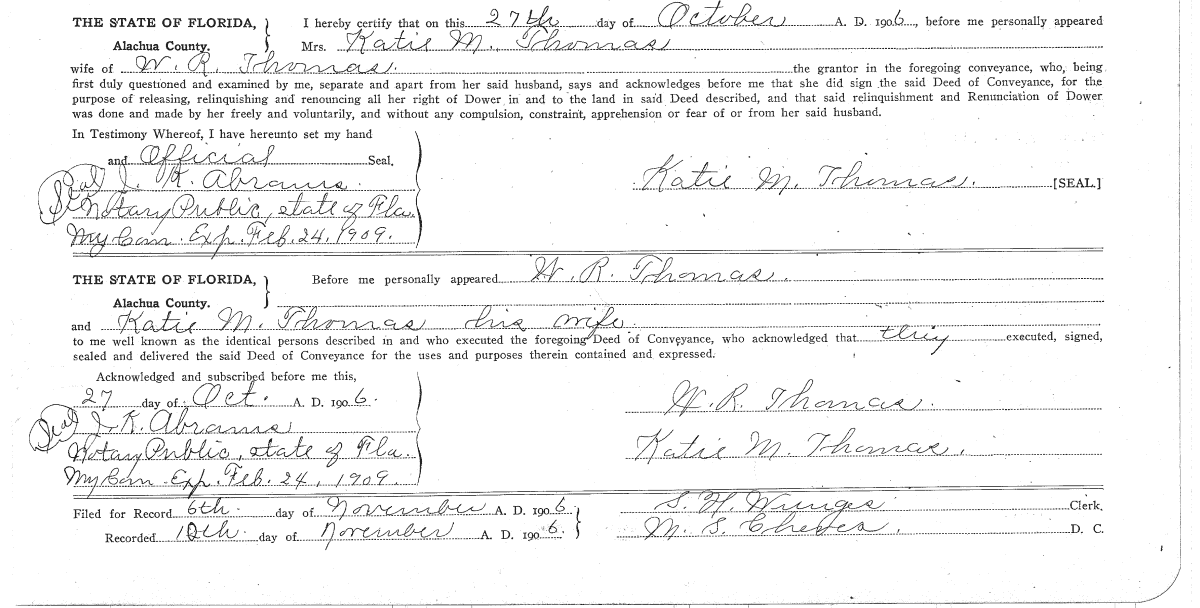 THE STATE OF FLORIDA, } I hereby certify that on this 27th day of October A. D. 1906, before me personally appeared
Alachua County. } Mrs. Katie M. Thomas
wife of W. R. Thomas. the grantor in the foregoing conveyance, who, being
first duly questioned and examined by me, separate and apart from her said husband, says and acknowledges before me that she did sign the said Deed of Conveyance, for the
purpose of releasing, relinquishing and renouncing all her right of Dower in and to the land in said Deed described, and that said relinquishment and Renunciation of Dower
was done and made by her freely and voluntarily, and without any compulsion, constraint, apprehension or fear of or from her said husband.
In Testimony Whereof, I have hereunto set my hand
and Official Seal,
Seal J. K. Abrams. Katie M. Thomas. [SEAL.]
Notary Public, state of Fla.
My Com. Exp. Feb. 24, 1909.
THE STATE OF FLORIDA, } Before me personally appeared W. R. Thomas.
Alachua County. }
and Katie M. Thomas his wife.
to me well known as the identical persons described in and who executed the foregoing Deed of Conveyance, who acknowledged that they executed, signed,
sealed and delivered the said Deed of Conveyance for the uses and purposes therein contained and expressed.
Acknowledged and subscribed before me this,
27 day of Oct. A. D. 1906. W. R. Thomas.
Seal J. K. Abrams
Notary Public, state of Fla. Katie M. Thomas.
My Com. Exp. Feb. 24, 1909.
Filed for Record 6th. day of November A. D. 1906. } S. H. Wienges Clerk.
Recorded 12th day of November A. D. 1906. } M. S. Cheves. D. C.